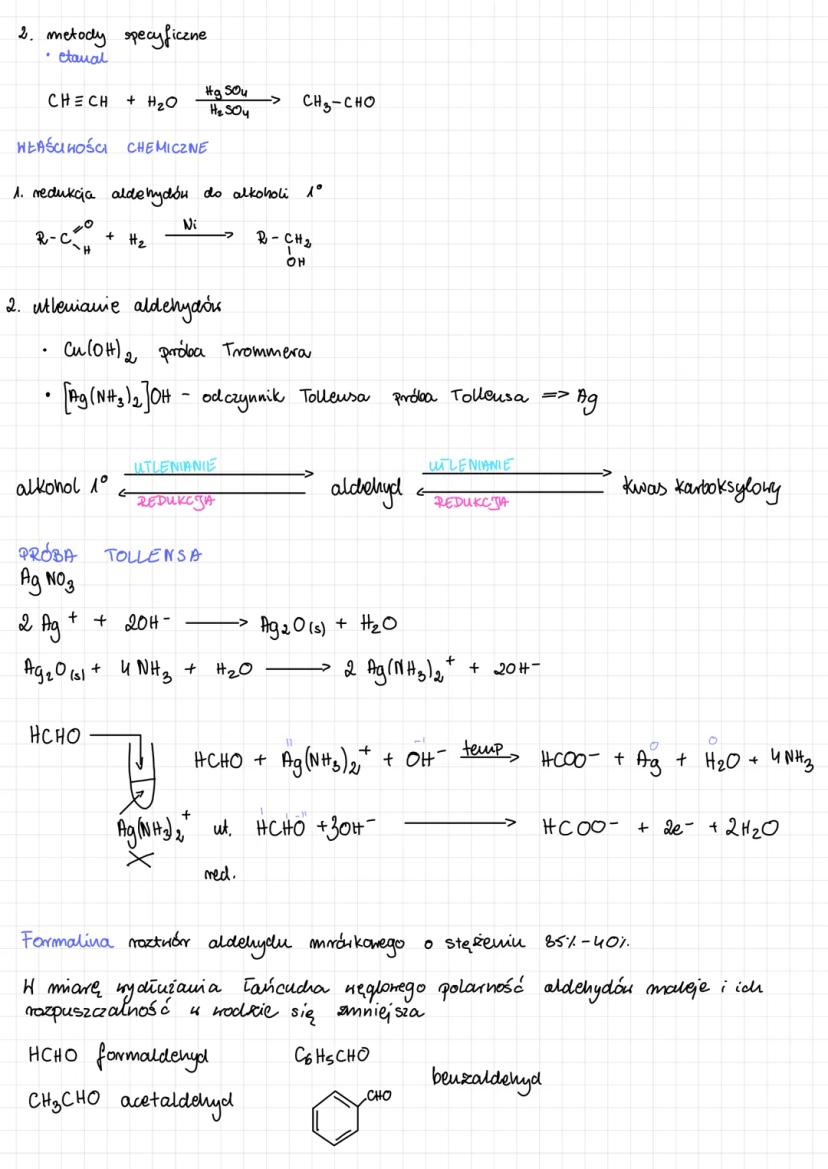 2. metody specyficzne
• etanal
CH≡CH + H₂O HgSO₄ H₂SO₄ → CH₃-CHO
WŁAŚCIWOŚCI CHEMICZNE
1. redukcja aldehydów do alkoholi 1°
R-C=O H + H₂ Ni → R-CH₂ OH
2. utlenianie aldehydów
• Cu(OH)₂ próba Trommera
• [Ag(NH₃)₂]OH - odczynnik Tollensa próba Tollensa => Ag
UTLENIANIE UTLENIANIE
alkohol 1° aldehyd kwas karboksylowy
REDUKCJA REDUKCJA
PRÓBA TOLLENSA
AgNO₃
2 Ag⁺ + 2OH⁻ → Ag₂O(s) + H₂O
Ag₂O(s) + 4 NH₃ + H₂O → 2 Ag(NH₃)₂⁺ + 2OH⁻
HCHO
HCHO + Ag(NH₃)₂⁺ + OH⁻ temp → HCOO⁻ + Ag + H₂O + 4 NH₃
Ag(NH₃)₂⁺ ut. HCHO + 3OH⁻ → HCOO⁻ + 2e⁻ + 2H₂O
red.
Formalina roztwór aldehydu mrówkowego o stężeniu 35%-40%.
W miarę wydłużania łańcucha węglowego polarność aldehydów maleje i ich
rozpuszczalność w wodzie się zmniejsza
HCHO formaldehyd C6H5CHO
benzaldehyd
CH₃CHO acetaldehyd CHO